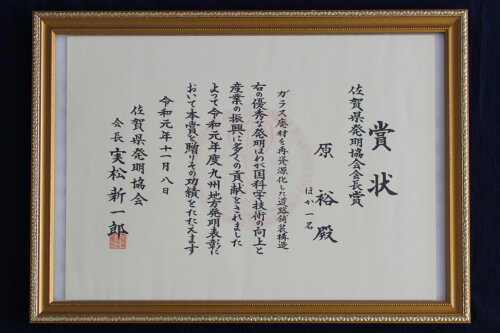 賞状
佐賀県発明協会会長賞
原 裕 殿
ほか一名
ガラス廃材を再資源化した道路舗装構造
右の優秀な発明はわが国科学技術の向上と
産業の振興に多くの貢献をされました
よって令和元年度九州地方発明表彰に
おいて本賞を贈りその功績をたたえます
令和元年十一月八日
佐賀県発明協会
会長 実松新一郎